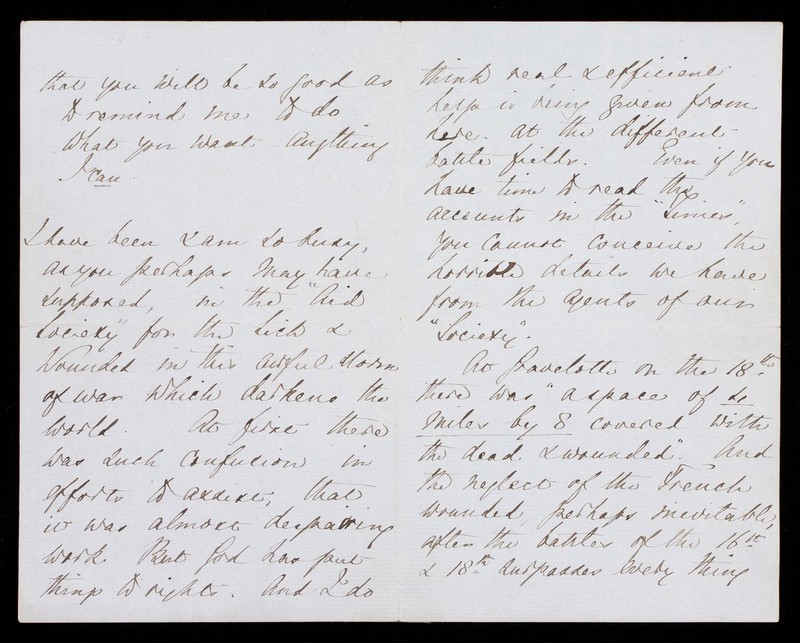 that you will be so good as
to remind me to do
what you want - anything
I can.
I have been & am so busy,
as you perhaps may have
supposed, in the "Aid
Society" for the Sick &
Wounded in this awful storm
of war which darkens the
world. At first there
was such confusion in
efforts to assist, that
it was almost despairing
work. But God has put
things to rights. And I do
think real & efficient
help is being given from
here at the different
battle fields. Even if you
have time to read the
accounts in the "Times",
you cannot conceive the
horrible details we have
from the Agents of our
"Society".
At Gravelotte on the 18th
there was "a space of
miles by 8 covered with
the dead & wounded". And
the neglect of the French
wounded, perhaps inevitable,
after the battles of the 16th
& 18th surpasses every thing